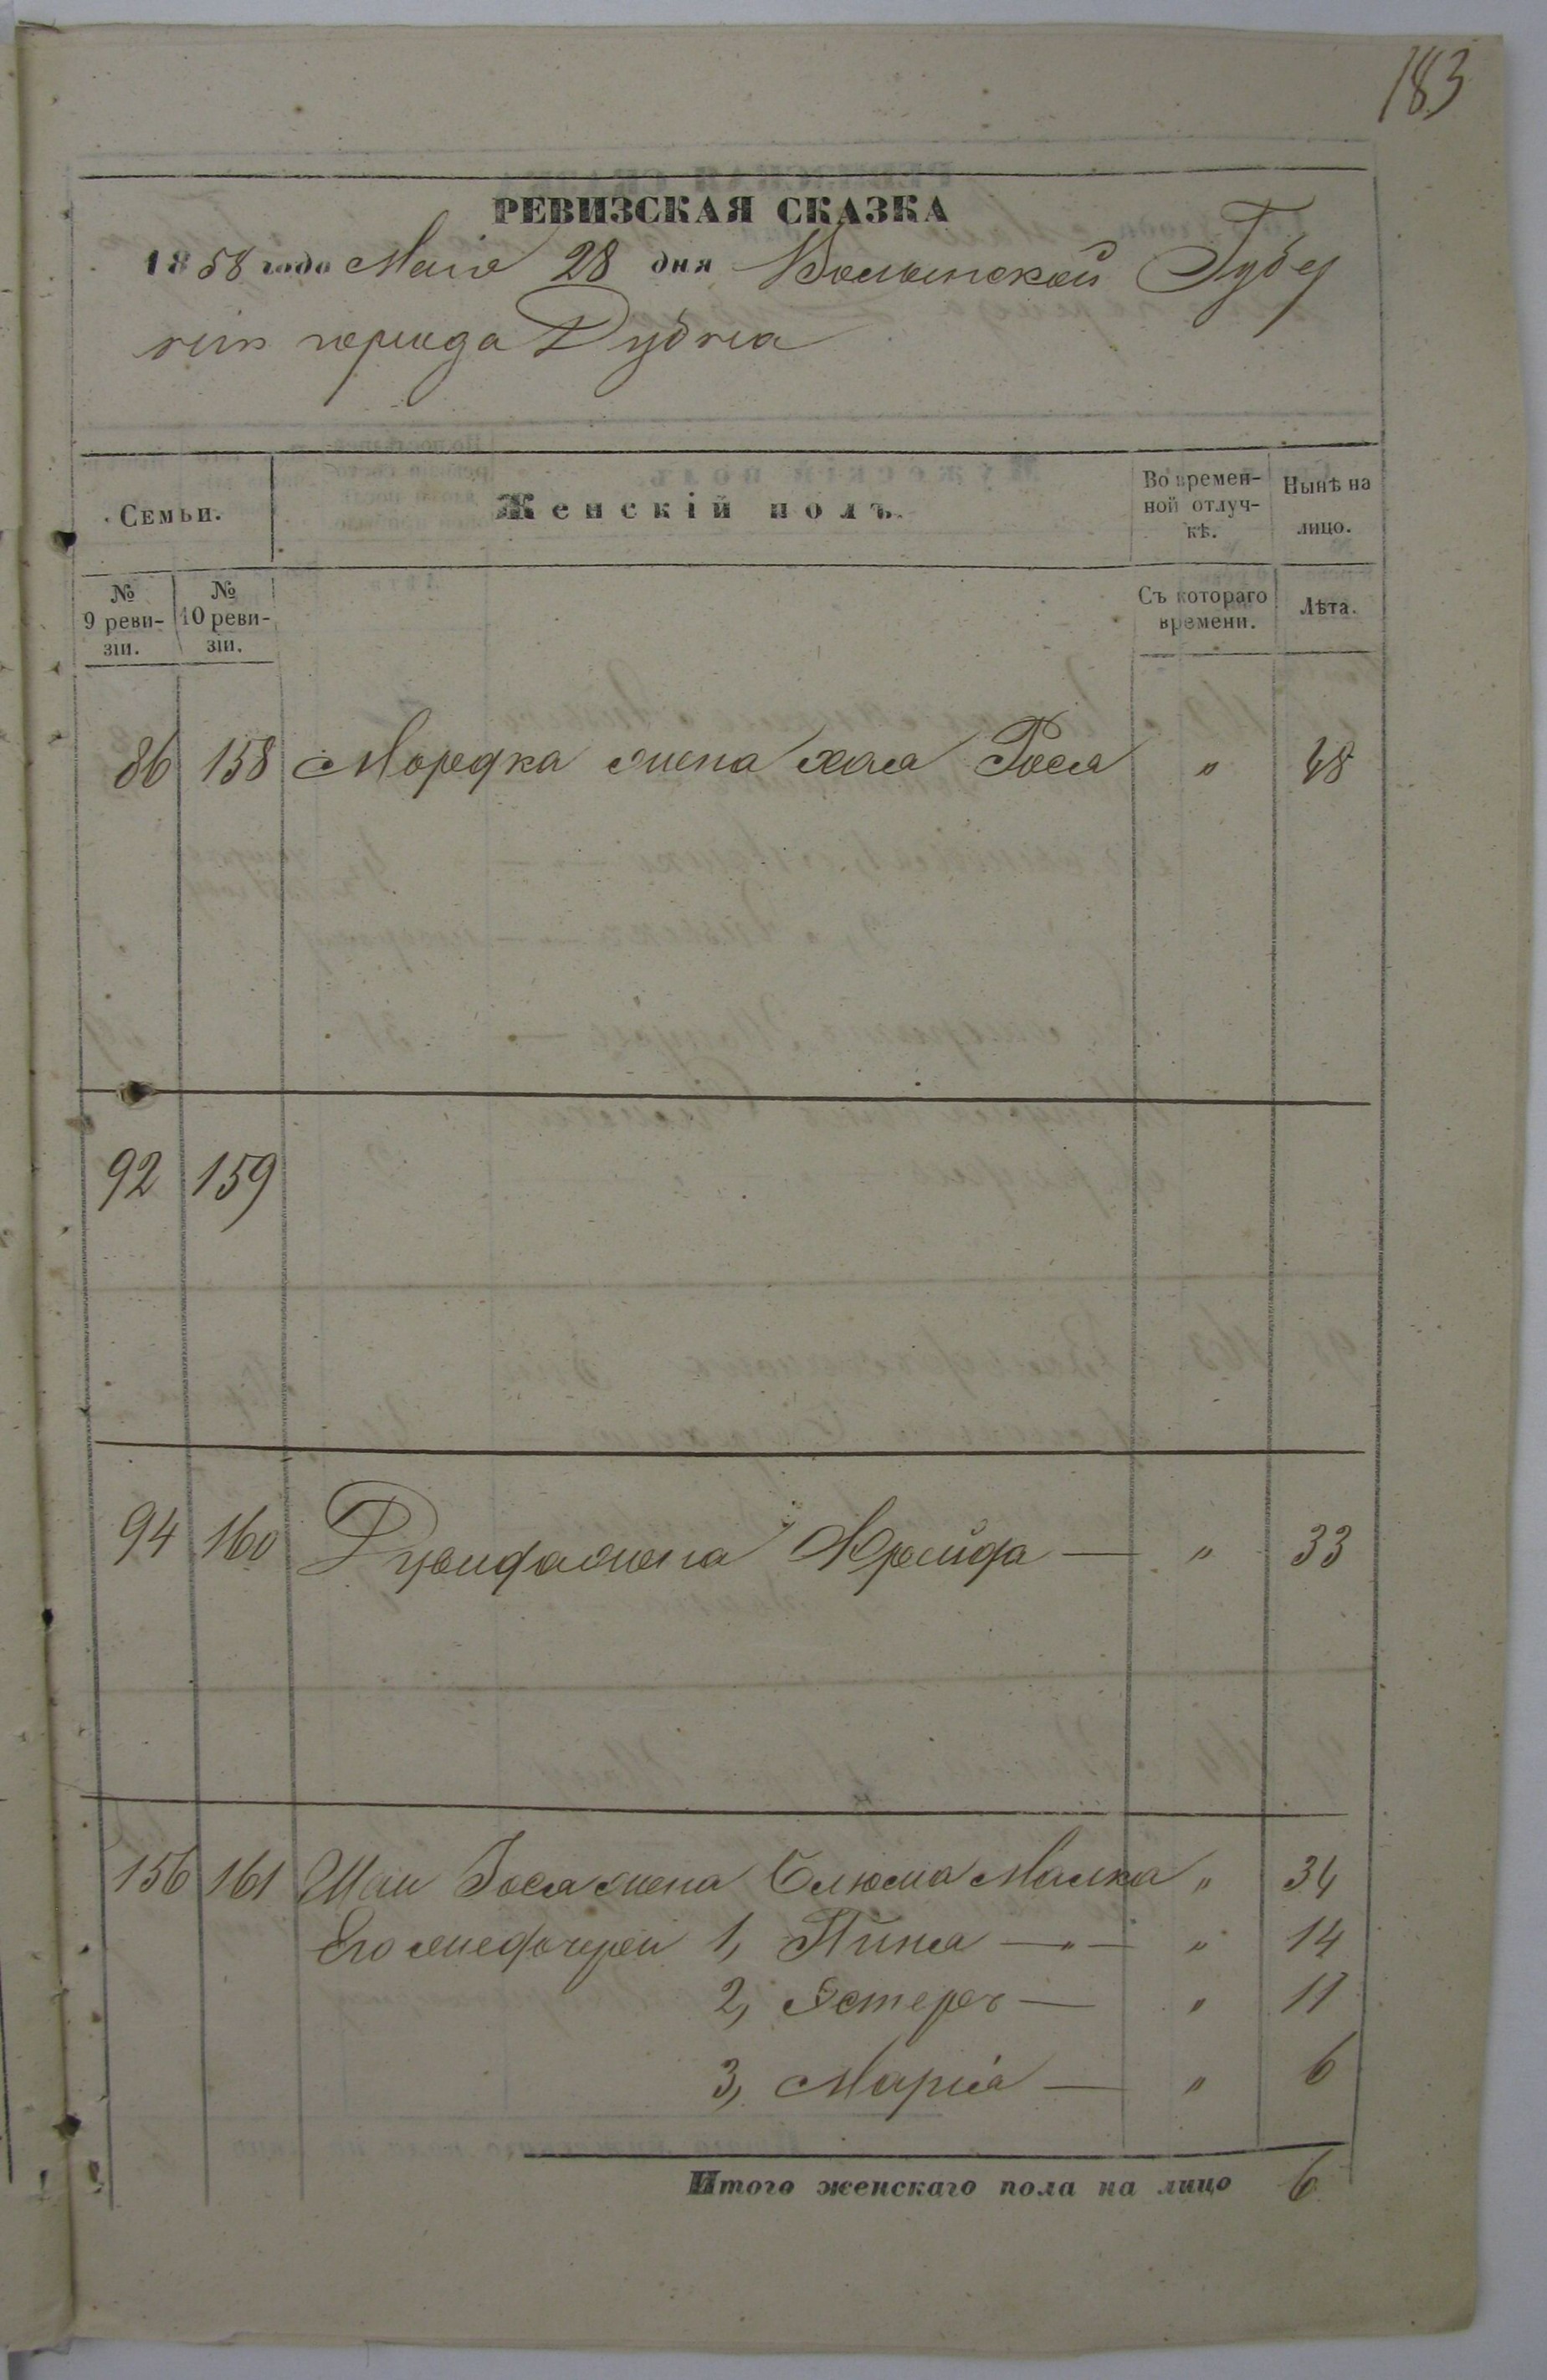 183
РЕВИЗСКАЯ СКАЗКА
1858 года Маія 28 дня Волынской Губер
ніи города Дубна
Семьи.
Женскій полъ.
Во времен-
ной отлуч-
кѣ.
Нынѣ на
лицо.
№
9 реви-
зіи.
№
10 реви-
зіи.
Съ котораго
времени.
Лѣта.
86 158 Мордка жена Хая Рося " 48
92 159
94 160 жена Фрейда — " 33
156 161 Шаи Іося жена Блюма Малка " 34
Его же дочери 1, Пиня — " — " 14
2, Эстеръ — " 11
3, Марія — " 6
Итого женскаго пола на лицо 6